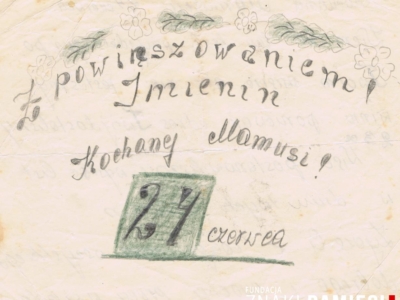 Z powinszowaniem!
Imienin
Kochanej Mamusi!
27
czerwca
FUNDACJA